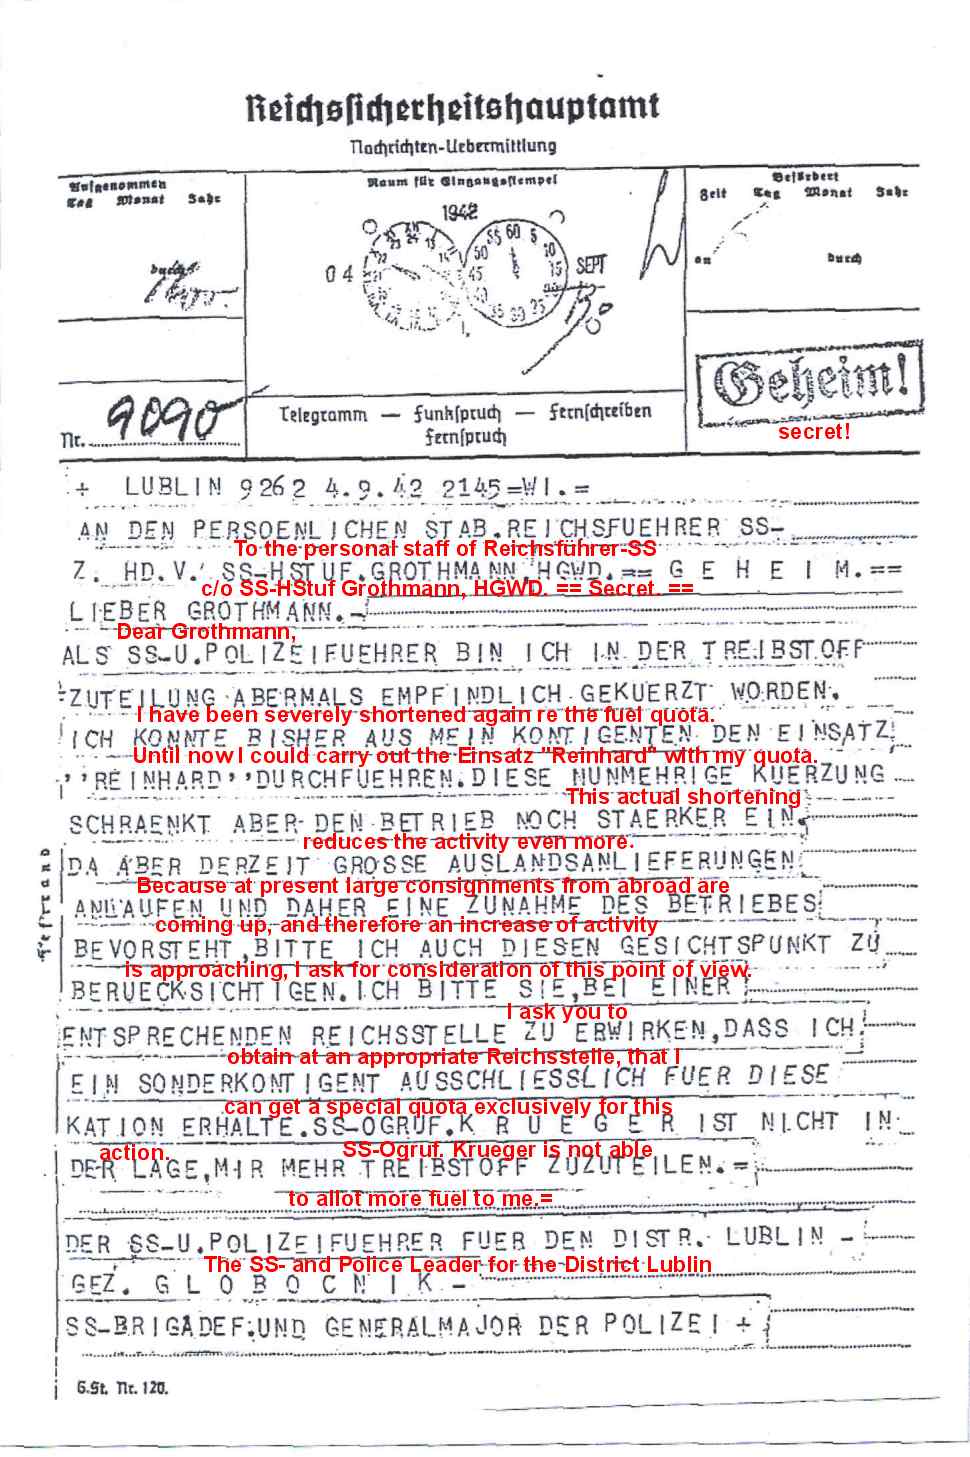 Reichssicherheitshauptamt
Nachrichten-Uebermittlung
Aufgenommen
Tag Monat Jahr
durch
Raum für Eingangsstempel
1942
04 SEPT
Befördert
Zeit Tag Monat Jahr
an durch
Geheim!
secret!
Nr. 9090
Telegramm — Funkspruch — Fernschreiben
Fernspruch
+ LUBLIN 9262 4.9.42 2145=WI.=
AN DEN PERSOENLICHEN STAB.REICHSFUEHRER SS-
To the personal staff of Reichsführer-SS
Z. HD.V. SS-HSTUF.GROTHMANN,HGWD.== G E H E I M.==
c/o SS-HStuf Grothmann, HGWD. == Secret. ==
LIEBER GROTHMANN.-
Dear Grothmann,
ALS SS-U.POLIZEIFUEHRER BIN ICH IN DER TREIBSTOFF
ZUTEILUNG ABERMALS EMPFINDLICH GEKUERZT WORDEN.
I have been severely shortened again re the fuel quota.
ICH KONNTE BISHER AUS MEIN KONTIGENTEN DEN EINSATZ
Until now I could carry out the Einsatz "Reinhard" with my quota.
''REINHARD''DURCHFUEHREN.DIESE NUNMEHRIGE KUERZUNG
This actual shortening
SCHRAENKT ABER DEN BETRIEB NOCH STAERKER EIN.
reduces the activity even more.
DA ABER DERZEIT GROSSE AUSLANDSANLIEFERUNGEN
Because at present large consignments from abroad are
ANLAUFEN UND DAHER EINE ZUNAHME DES BETRIEBES
coming up, and therefore an increase of activity
BEVORSTEHT,BITTE ICH AUCH DIESEN GESICHTSPUNKT ZU
is approaching, I ask for consideration of this point of view.
BERUECKSICHTIGEN.ICH BITTE SIE,BEI EINER
I ask you to
ENTSPRECHENDEN REICHSSTELLE ZU ERWIRKEN,DASS ICH
obtain at an appropriate Reichsstelle, that I
EIN SONDERKONTIGENT AUSSCHLIESSLICH FUER DIESE
can get a special quota exclusively for this
KATION ERHALTE.SS-OGRUF.K R U E G E R IST NICHT IN
action. SS-Ogruf. Krueger is not able
DER LAGE,MIR MEHR TREIBSTOFF ZUZUTEILEN.=
to allot more fuel to me.=
DER SS-U.POLIZEIFUEHRER FUER DEN DISTR. LUBLIN -
The SS- and Police Leader for the District Lublin
GEZ. G L O B O C N I K -
SS-BRIGADEF.UND GENERALMAJOR DER POLIZEI +
G.St. Nr. 120.